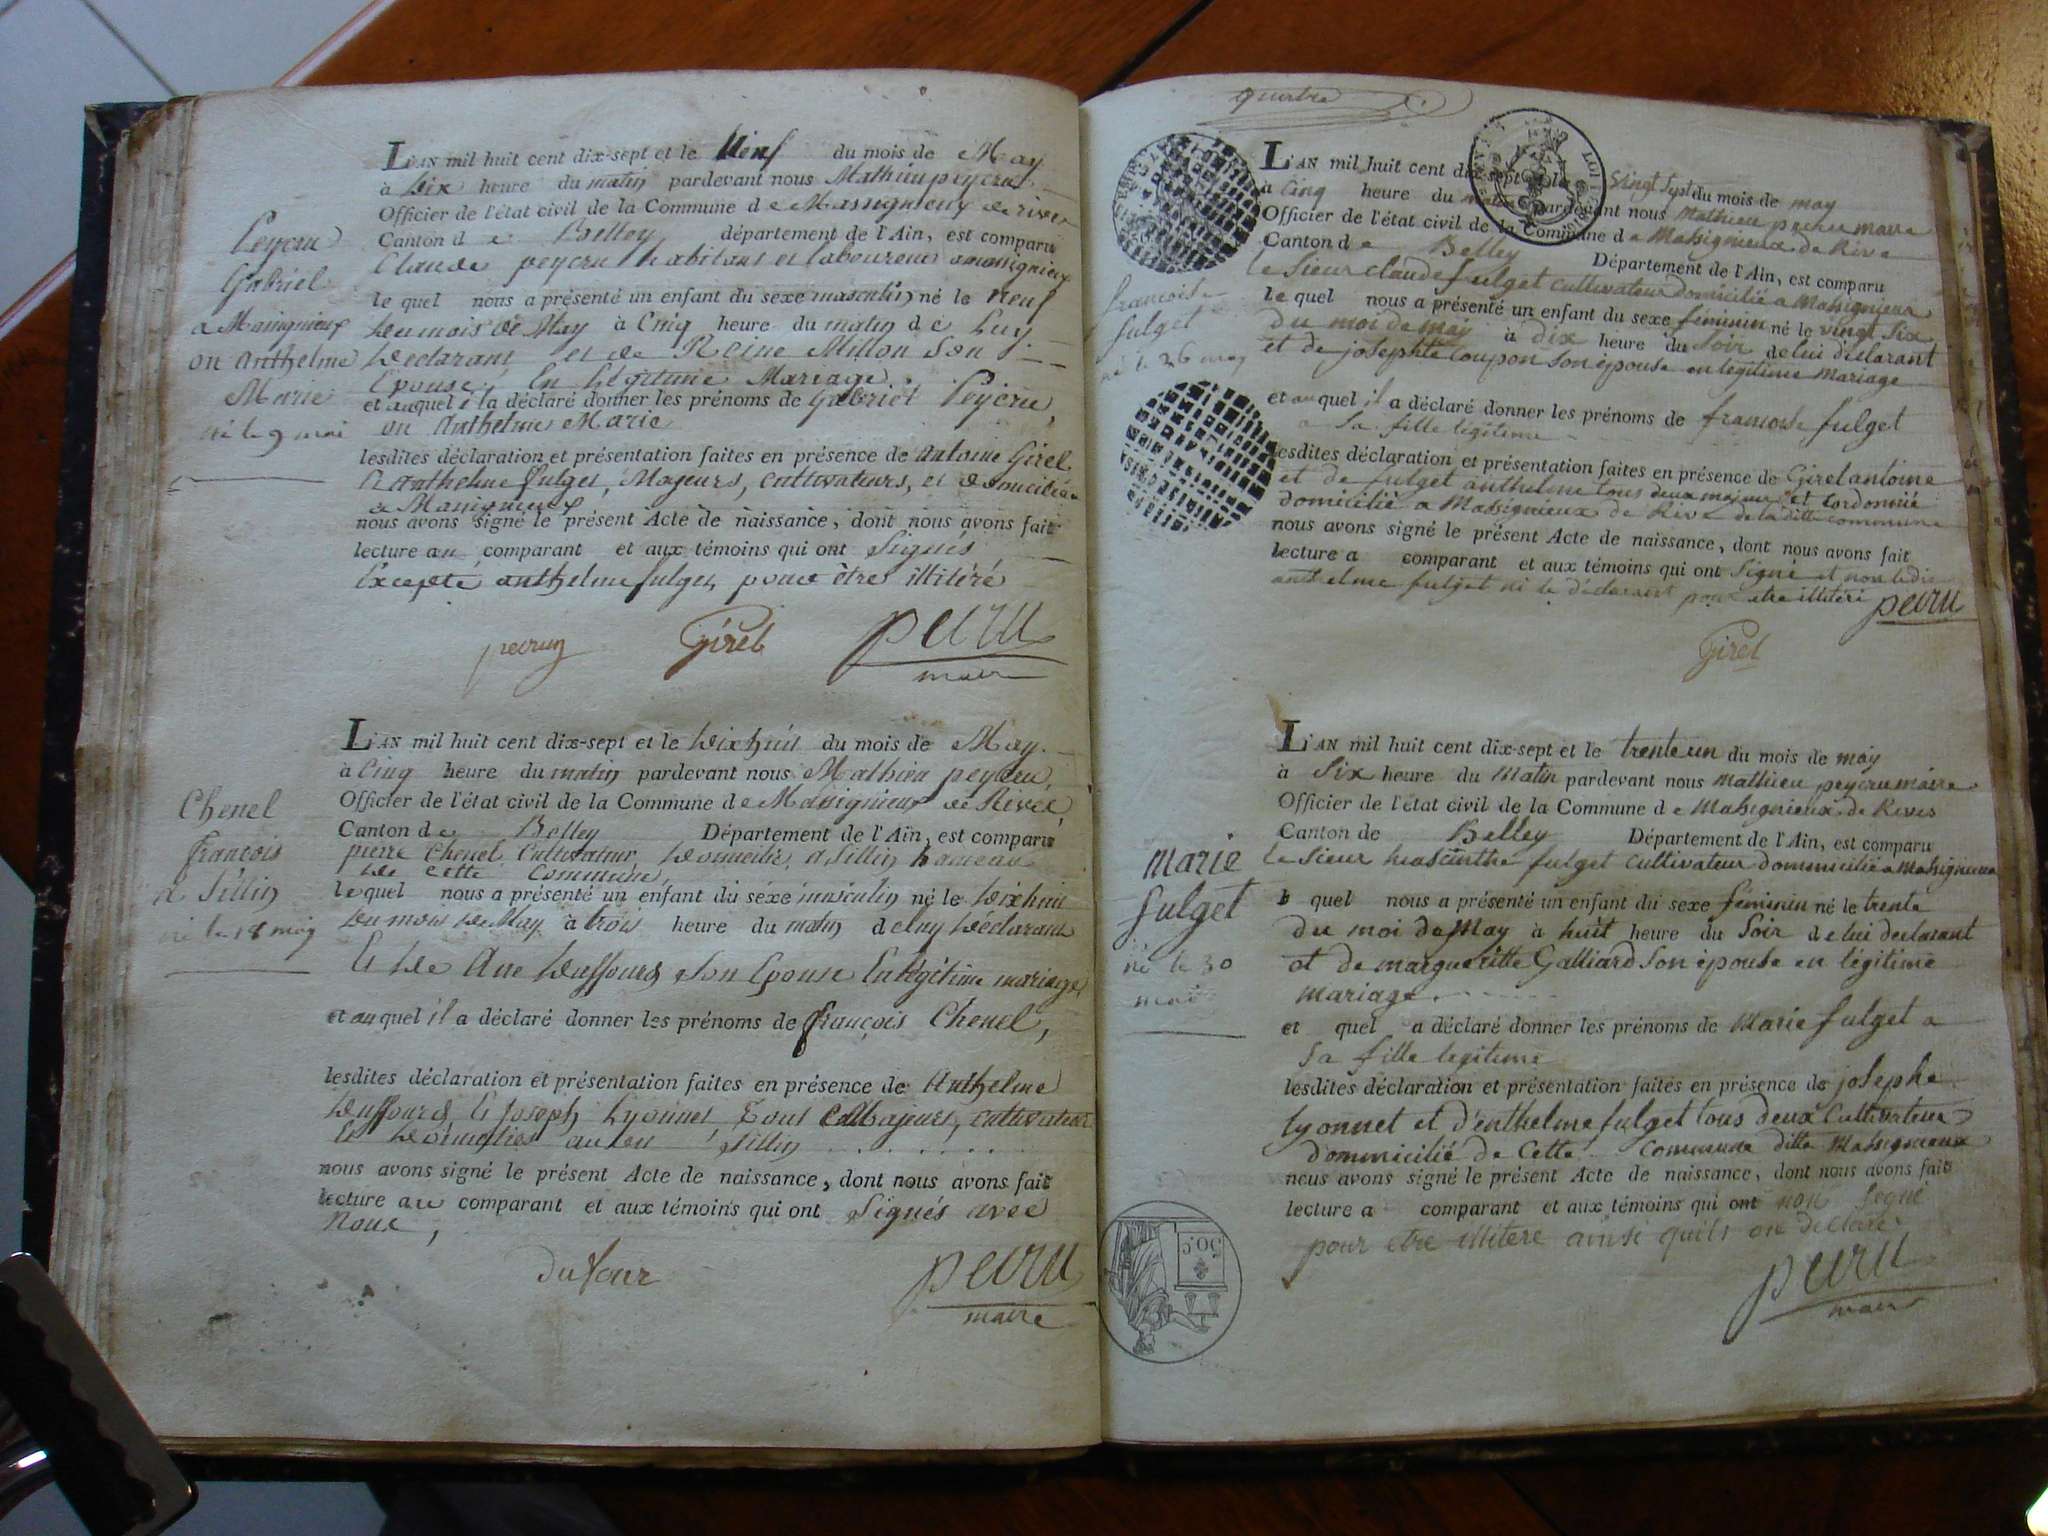 L'AN mil huit cent dix-sept et le Neuf du mois de May
à Dix heure du matin pardevant nous Mathieu peycru
Officier de l'état civil de la Commune de Massignieux de rives
Canton de Belley département de l'Ain, est comparu
Claude peycru habitant et laboureur a massignieux
le quel nous a présenté un enfant du sexe masculin né le neuf
du mois de May à Cinq heure du matin de Luy
Declarant et de Reine Millon Son
Epouse, En Légitime Mariage
et auquel i la déclaré donner les prénoms de Gabriel Peycru,
ou Anthelme Marie
lesdites déclaration et présentation faites en présence de Antoine Girel
& Anthelme fulget, Majeurs, cultivateurs, et domicilié
a Massignieux
nous avons signé le présent Acte de naissance, dont nous avons fait
lecture au comparant et aux témoins qui ont Signés
Excepté anthelme fulget, pour être illitéré
Peycru
Gabriel
a Massignieux
ou Anthelme
Marie
né le 9 mai
pecruy Girel pecru
maire
L'AN mil huit cent dix-sept et le Dixhuit du mois de May
à Cinq heure du matin pardevant nous Mathieu peycru,
Officier de l'état civil de la Commune de Massignieux de Rives,
Canton de Belley Département de l'Ain, est comparu
pierre Chenel Cultivateur, Domicilié a Sillin hameau
de cette Commune,
le quel nous a présenté un enfant du sexe masculin né le Dixhuit
du mois de May à trois heure du matin de luy Déclarant
Et De Ane Duffourd Son Epouse En légitime mariage
et auquel il a déclaré donner les prénoms de françois Chenel,
lesdites déclaration et présentation faites en présence de Anthelme
Duffourd & Joseph Lyonnet, Tous Majeurs, cultivateur
et Domicilies au Sillin
nous avons signé le présent Acte de naissance, dont nous avons fait
lecture au comparant et aux témoins qui ont Signés avec
Nous,
Chenel
françois
a Sillin
né le 18 may
dufour pecru
maire
quatre
L'AN mil huit cent dix-sept et le vingt sept du mois de may
à Cinq heure du matin pardevant nous Mathieu pecru maire
Officier de l'état civil de la Commune de Massignieux de Rive
Canton de Belley Département de l'Ain, est comparu
le Sieur claude fulget cultivateur domicilié a Massignieux
le quel nous a présenté un enfant du sexe féminin né le vingt Six
du moi de may à dix heure du Soir de lui déclarant
et de josephte coupon son épouse en légitime mariage
et au quel il a déclaré donner les prénoms de francoise fulget
a Sa fille légitime
lesdites déclaration et présentation faites en présence de Girel antoine
et de fulget anthelme tous deux majeur et cordonnié
domicilié a Massignieux de Rive de la ditte commune
nous avons signé le présent Acte de naissance, dont nous avons fait
lecture a comparant et aux témoins qui ont Signé et non ledi
anthelme fulget ni le déclarant pour etre illitéri pecru
francoise
fulget
né le 26 may
Girel
LOI
L'AN mil huit cent dix-sept et le trente un du mois de may
à Six heure du Matin pardevant nous mathieu peycru maire
Officier de l'état civil de la Commune de Massignieux de Rives
Canton de Belley Département de l'Ain, est comparu
le Sieur hiascinthe fulget cultivateur dommicilié a Massignieux
le quel nous a présenté un enfant du sexe féminin né le trente
du moi de May à huit heure du Soir de lui declarant
et de margueritte Galliard Son épouse en légitime
mariage
et quel a déclaré donner les prénoms de Marie fulget a
Sa fille légitime
lesdites déclaration et présentation faites en présence de josephe
Lyonnet et d'enthelme fulget tous deux Cultivateur
dommicilié de Cette Commune ditte Massignieux
nous avons signé le présent Acte de naissance, dont nous avons fait
lecture a comparant et aux témoins qui ont non Signé
pour etre illitere ainsi quils on declaré
Marie
fulget
né le 30
mai
50 c.
pecru
maire